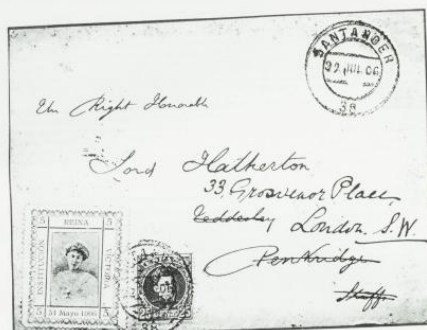 SANTANDER
JUL 06
38
The Right Honorable
Lord Hatherton
33, Grosvenor Place,
Teddesley London, S.W.
Penkridge
Staffs
5 REINA 5
INSTITUCIÓN
VICTORIA
5 31 Mayo 1906 5
25 25